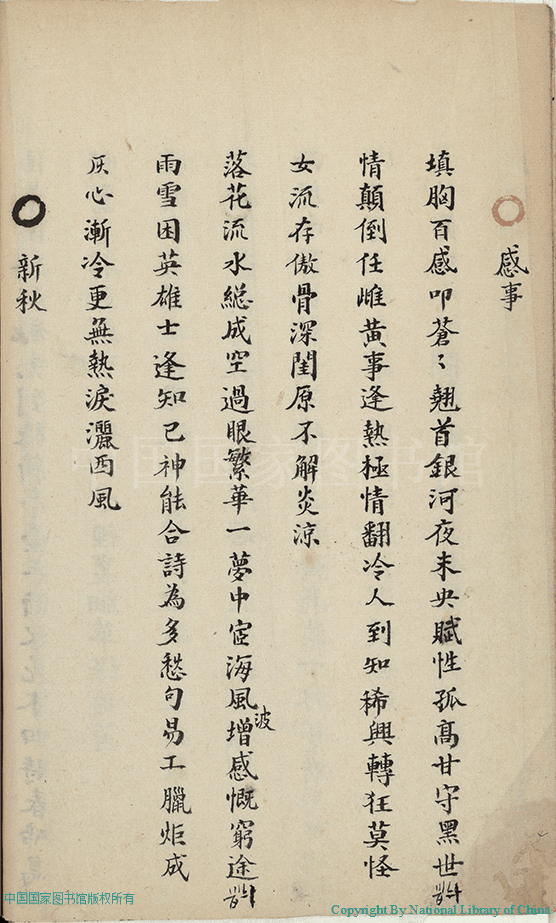 感事
填胸百感叩蒼〻翹首銀河夜未央賦性孤高甘守黑世
情顛倒任雌黃事逢熱極情翻冷人到知稀興轉狂莫怪
女流存傲骨深閨原不解炎涼
落花流水総成空過眼繁華一夢中宦海風波增感慨窮途
雨雪困英雄士逢知己神能合詩為多愁句易工臘炬成
灰心漸冷更無熱淚灑西風
新秋
中国国家图书馆
中国国家图书馆版权所有
Copyright By National Library of China